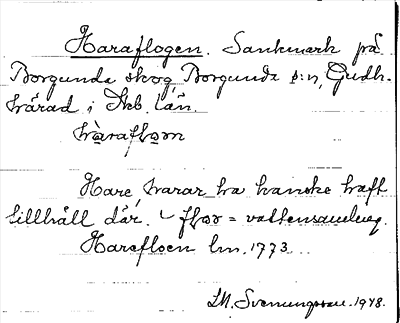 Haraflogen. Sankmark på
Borgunda skog, Borgunda s:n, Gudh.
härad i Skb. län.
hàraflωn
Hare, harar ha kanske haft
tillhåll där. flωo = vattensamling.
Harefloen lm. 1773
M. Svenungsson. 1948.